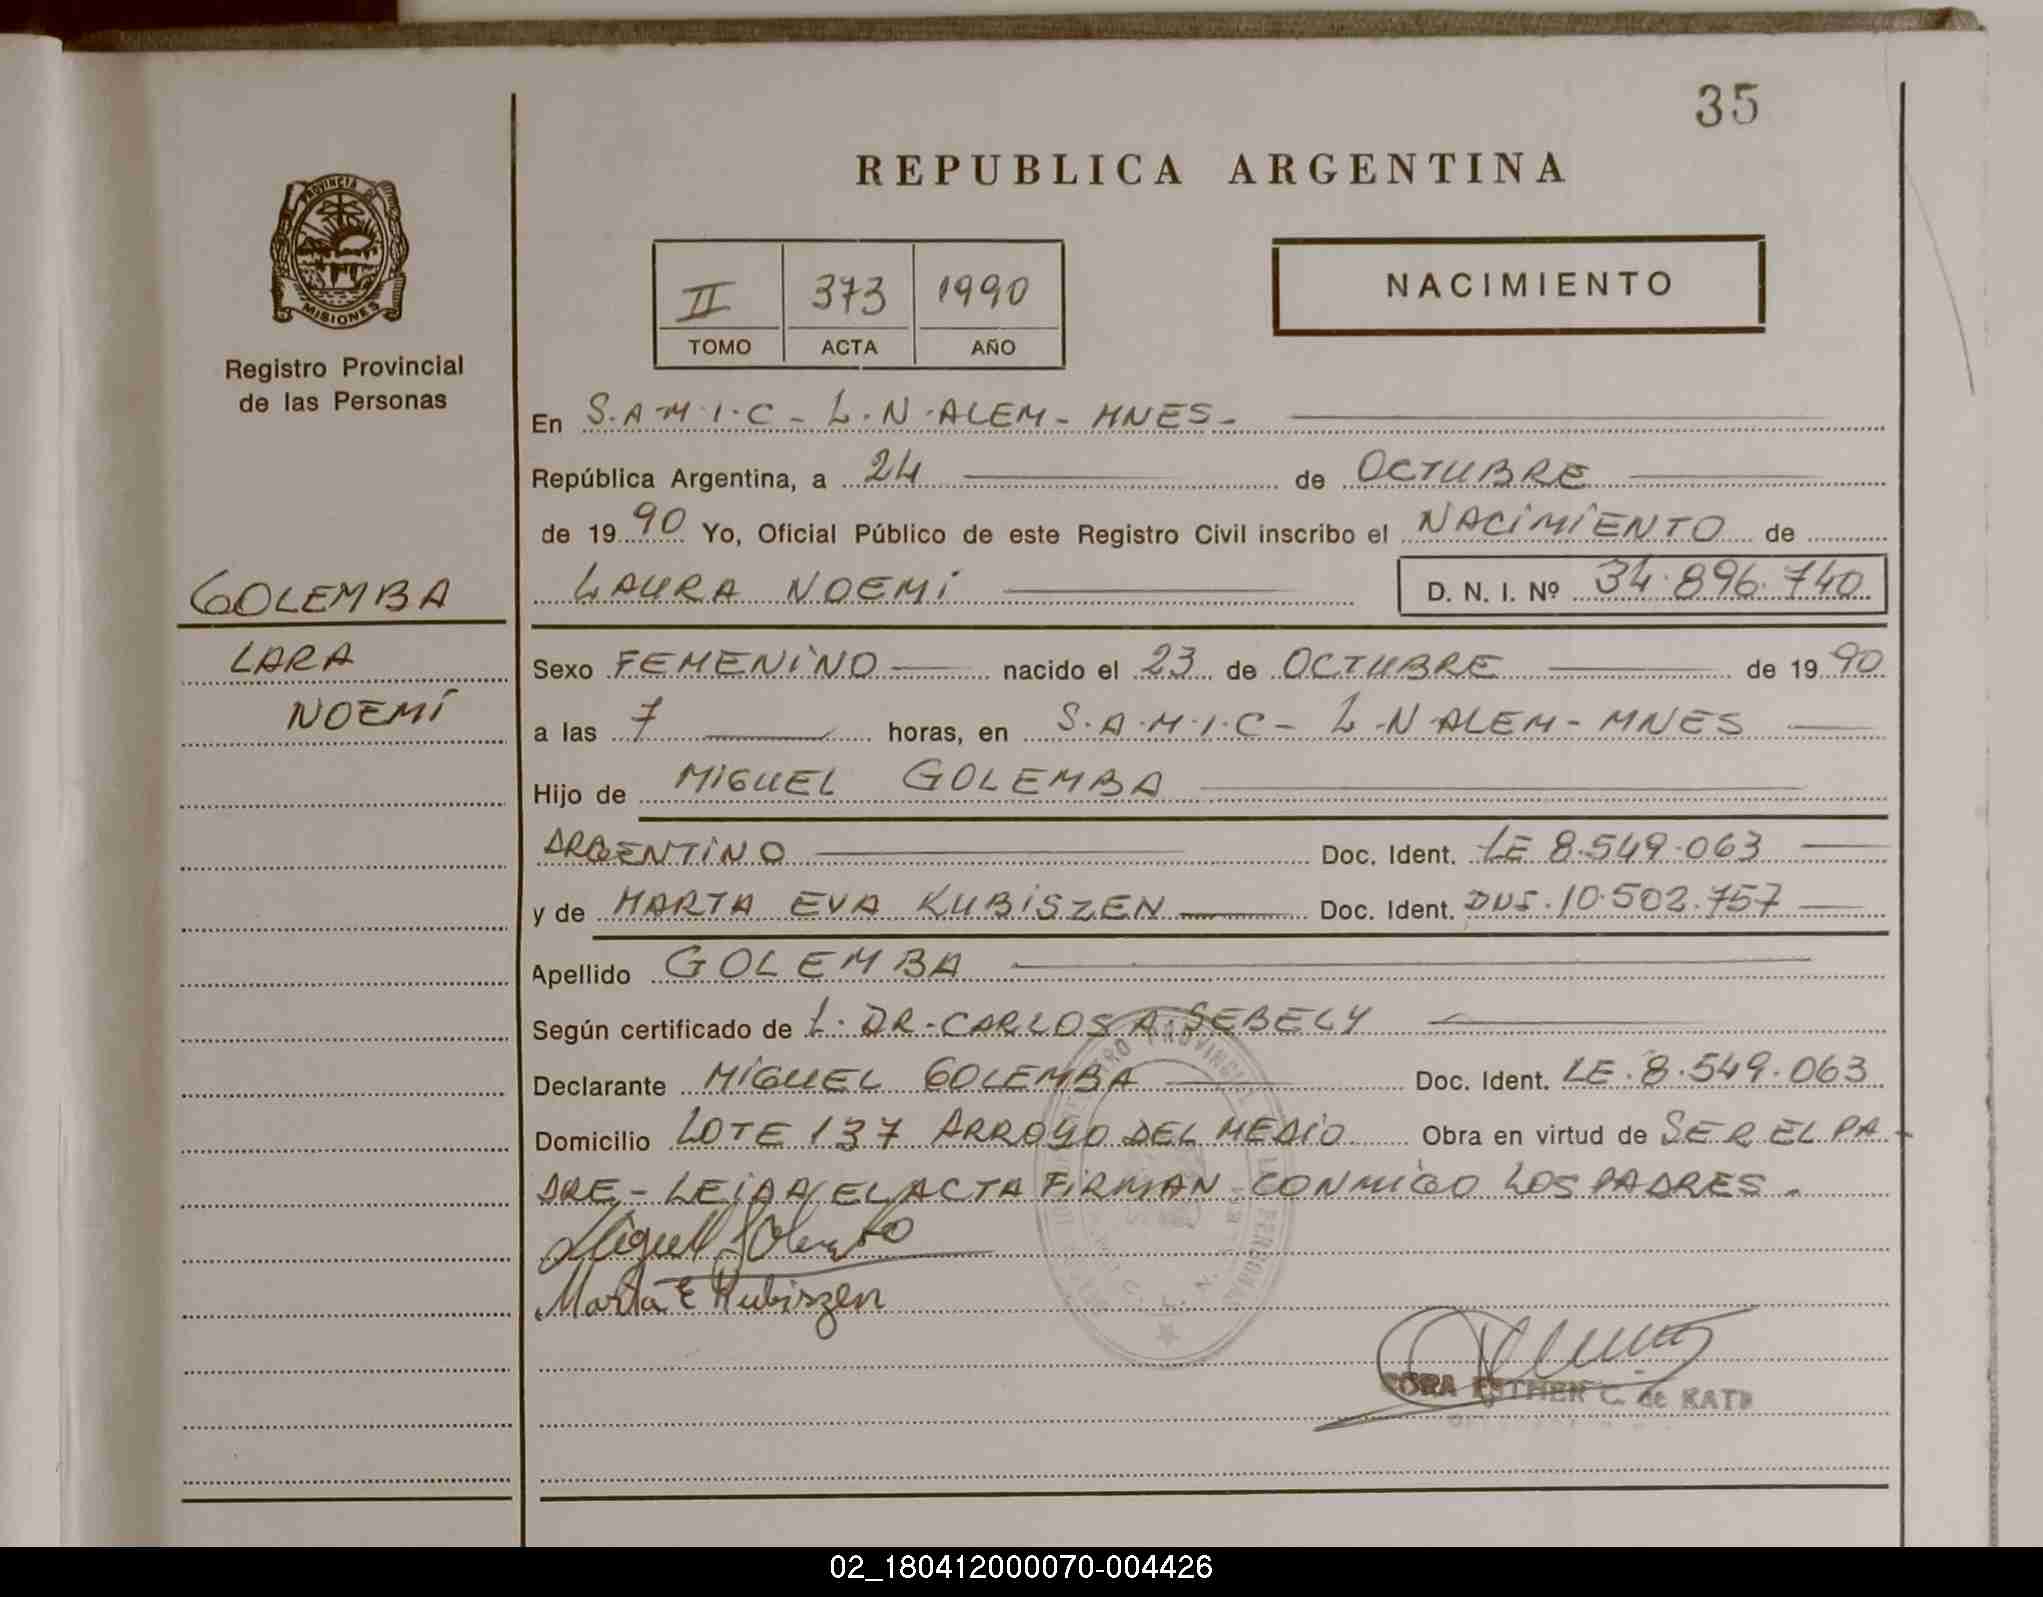 35
REPUBLICA ARGENTINA
PROVINCIA D
MISIONES
Registro Provincial
de las Personas
II 373 1990
TOMO ACTA AÑO
NACIMIENTO
En S.A.M.I.C - L.N.ALEM - MNES-
República Argentina, a 24 de OCTUBRE
de 1990 Yo, Oficial Público de este Registro Civil inscribo el NACIMIENTO de
LAURA NOEMI D. N. I. Nº 34.896.740
GOLEMBA
LARA
NOEMÍ
Sexo FEMENINO nacido el 23 de OCTUBRE de 1990
a las 7 horas, en S.A.M.I.C - L.N ALEM - MNES
Hijo de MIGUEL GOLEMBA
ARGENTINO Doc. Ident. LE 8.549.063
y de MARTA EVA KUBISZEN Doc. Ident. DNI. 10.502.757
Apellido GOLEMBA
Según certificado de L. DR. CARLOS A SEBELY
Declarante MIGUEL GOLEMBA Doc. Ident. LE. 8.549.063
Domicilio LOTE 137 ARROYO DEL MEDIO Obra en virtud de SER EL PA-
DRE - LEIDA EL ACTA FIRMAN CONMIGO LOS PADRES.
Miguel Golemba
Marta E Kubiszen
ESTHER C. de
02_180412000070-004426